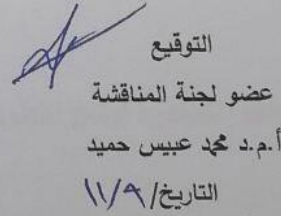 التوقيع
عضو لجنة المناقشة
أ.م.د محمد عبيس حميد
التاريخ/ ١١/٩